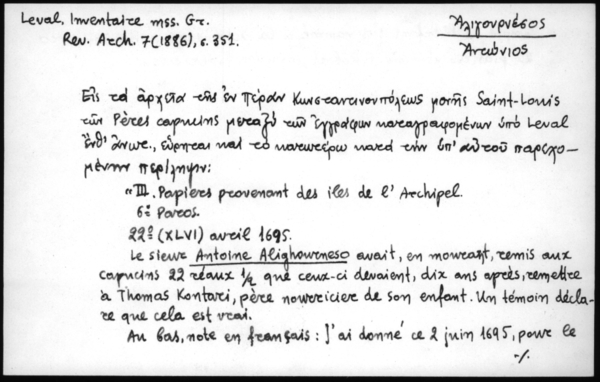 Leval, Inventaire mss. Gr.
Rev. Arch. 7 (1886), σ. 351.
Ἀλιγουρνέσος
Ἀντώνιος
Εἰς τὰ ἀρχεῖα τῆς ἐν Πέραν Κωνσταντινουπόλεως μονῆς Saint-Louis
τῶν Pères capucins μεταξὺ τῶν ἐγγράφων καταγραφομένων ὑπὸ Leval
ἔνθ' ἄνωτ., εὕρηται καὶ τὸ κατωτέρω κατὰ τὴν ὑπ' αὐτοῦ παρεχο-
μένην περίληψιν:
"III. Papiers provenant des iles de l'Archipel.
6º Paros.
22º (XLVI) avril 1695.
Le sieur Antoine Alighourneso avait, en mourant, remis aux
capucins 22 réaux ½ que ceux-ci devaient, dix ans après, remettre
à Thomas Kontari, père nourricier de son enfant. Un témoin décla-
re que cela est vrai.
Au bas, note en français: J'ai donné ce 2 juin 1695, pour le
-/.